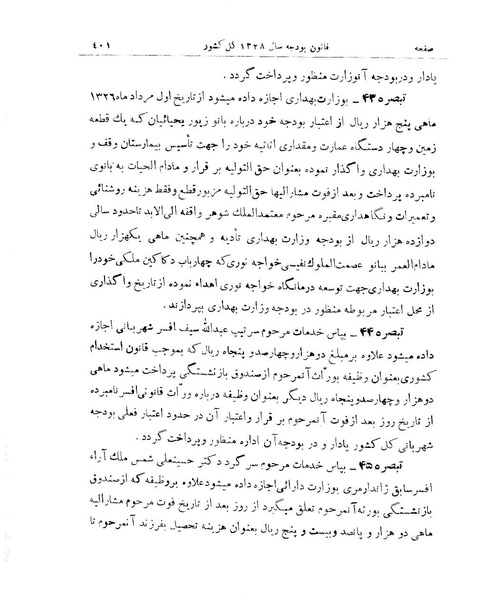 صفحه قانون بودجه سال ۱۳۲۸ کل کشور ۴۰۱
یادار ودربودجه آنوزارت منظور وپرداخت گردد .
تبصره ۴۳۵ ـ بوزارت بهداری اجازه داده میشود ازتاریخ اول مرداد ماه ۱۳۲۶
ماهی پنج هزار ریال از اعتبار بودجه خود درباره بانو زیور یحیائیان که یك قطعه
زمین وچهار دستگاه عمارت ومقداری اثاثیه خود را جهت تأسیس بیمارستان وقف و
بوزارت بهداری واگذار نموده بعنوان حق التولیه بر قرار و مادام الحیات به بانوی
نامبرده پرداخت و بعد ازفوت مشارالیها حق التولیه مزبور قطع وفقط هزینه روشنائی
وتعمیرات ونگاهداری مقبره مرحوم معتمدالملك شوهر واقفه الی الابد تاحدود سالی
دوازده هزار ریال از بودجه وزارت بهداری تأدیه و همچنین ماهی یکهزار ریال
مادام العمر ببانو عصمت الملوك نفیسی خواجه نوری که چهارباب دکاکین ملکی خودرا
بوزارت بهداری جهت توسعه درمانگاه خواجه نوری اهداء نموده ازتاریخ واگذاری
از محل اعتبار مربوطه منظور در بودجه وزارت بهداری بپردازند .
تبصره ۴۴۵ ـ بپاس خدمات مرحوم سرتیپ عبدالله سیف افسر شهربانی اجازه
داده میشود علاوه برمبلغ دوهزاروچهارصدو پنجاه ریال که بموجب قانون استخدام
کشوری بعنوان وظیفه بورّاث آنمرحوم ازصندوق بازنشستگی پرداخت میشود ماهی
دوهزار وچهارصدوپنجاه ریال دیگر بعنوان وظیفه درباره ورّاث قانونی افسر نامبرده
از تاریخ روز بعد ازفوت آنمرحوم بر قرار واعتبار آن در حدود اعتبار فعلی بودجه
شهربانی کل کشور یادار و در بودجه آن اداره منظور وپرداخت گردد .
تبصره ۴۵۵ ـ بپاس خدمات مرحوم سرگرد دکتر حسینعلی شمس ملك آراء
افسر سابق ژاندارمری بوزارت دارائی اجازه داده میشود علاوه بروظیفه که ازصندوق
بازنشستگی بورثه آنمرحوم تعلق میگیرد از روز بعد از تاریخ فوت مرحوم مشارالیه
ماهی دو هزار و پانصد وبیست و پنج ریال بعنوان هزینه تحصیل بفرزند آنمرحوم تا